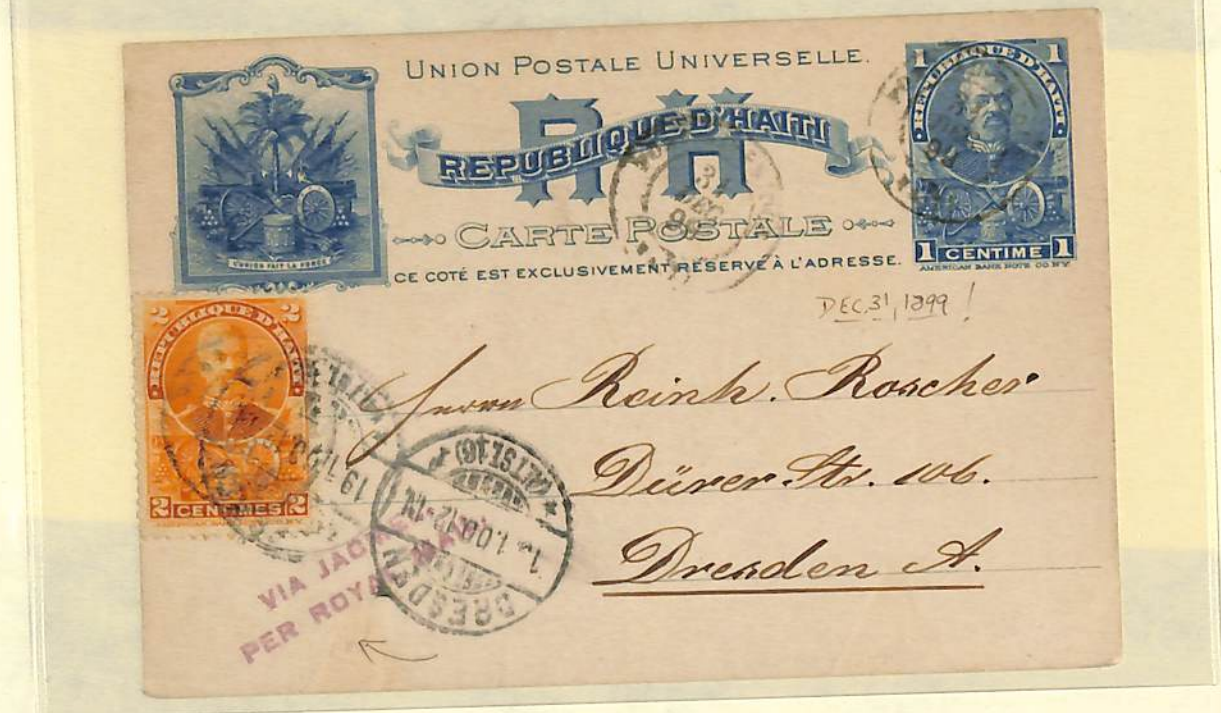 UNION POSTALE UNIVERSELLE.
RH
REPUBLIQUE D'HAITI
CARTE POSTALE
CE COTÉ EST EXCLUSIVEMENT RÉSERVÉ À L'ADRESSE.
L'UNION FAIT LA FORCE
1 1
REPUBLIQUE D'HAITI
1 CENTIME 1
AMERICAN BANK NOTE CO. N.Y.
31
DEC
DEC. 31, 1899 !
2 2
REPUBLIQUE D'HAITI
2 CENTIMES 2
AMERICAN BANK NOTE CO. N.Y.
Herrn Reinh. Roscher
Dürer-Str. 106.
Dresden A.
DRESDEN
(ALTST.) 16
12-1N.
VIA
PER ROYAL